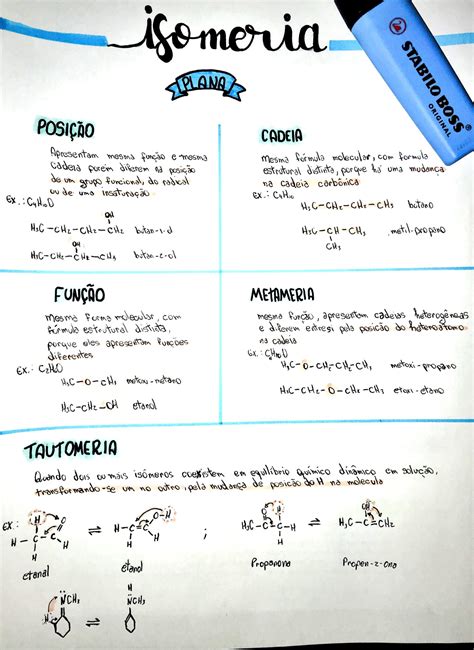 isomeria
PLANA
STABILO BOSS
ORIGINAL
POSIÇÃO
Apresentam mesma função e mesma
cadeia porém diferem na posição
de um grupo funcional, do radical
ou de uma insaturação.
OH
H₃C-CH₂-CH₂-CH₂ butan-1-ol
OH
butan-2-ol
CADEIA
mesma fórmula molecular, com formula
estrutural distinta, porque há uma mudança
na cadeia carbônica
H₃C-CH₂-CH₂-CH₃ butano
H₃C-CH-CH₃ metil-propano
CH₃
FUNÇÃO
mesma forma molecular, com
fórmula estrutural distinta,
porque eles apresentam funções
diferentes
Ex.: C₂H₆O
H₃C-O-CH₃ metoxi-metano
H₃C-CH₂-OH etanol
METAMERIA
mesma função, apresentam cadeias heterogêneas
e diferem entresi pela posição do heteroátomo
na cadeia
H₃C-O-CH₂-CH₂-CH₃ metoxi-propano
H₃C-CH₂-O-CH₂-CH₃ etoxi-etano
TAUTOMERIA
Quando dois ou mais isômeros coexistem em equilíbrio químico dinâmico em solução,
transformando-se um no outro, pela mudança de posição do H na molecula
Ex:
etanal
etenol
Propanona
Propen-2-